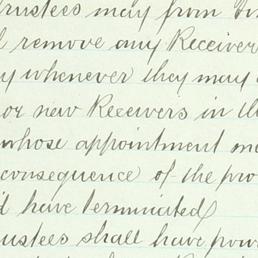 trustees may from
remove any Receiver
whenever they may
or new Receivers in
whose appointment
consequence of the
have terminated
trustees shall have